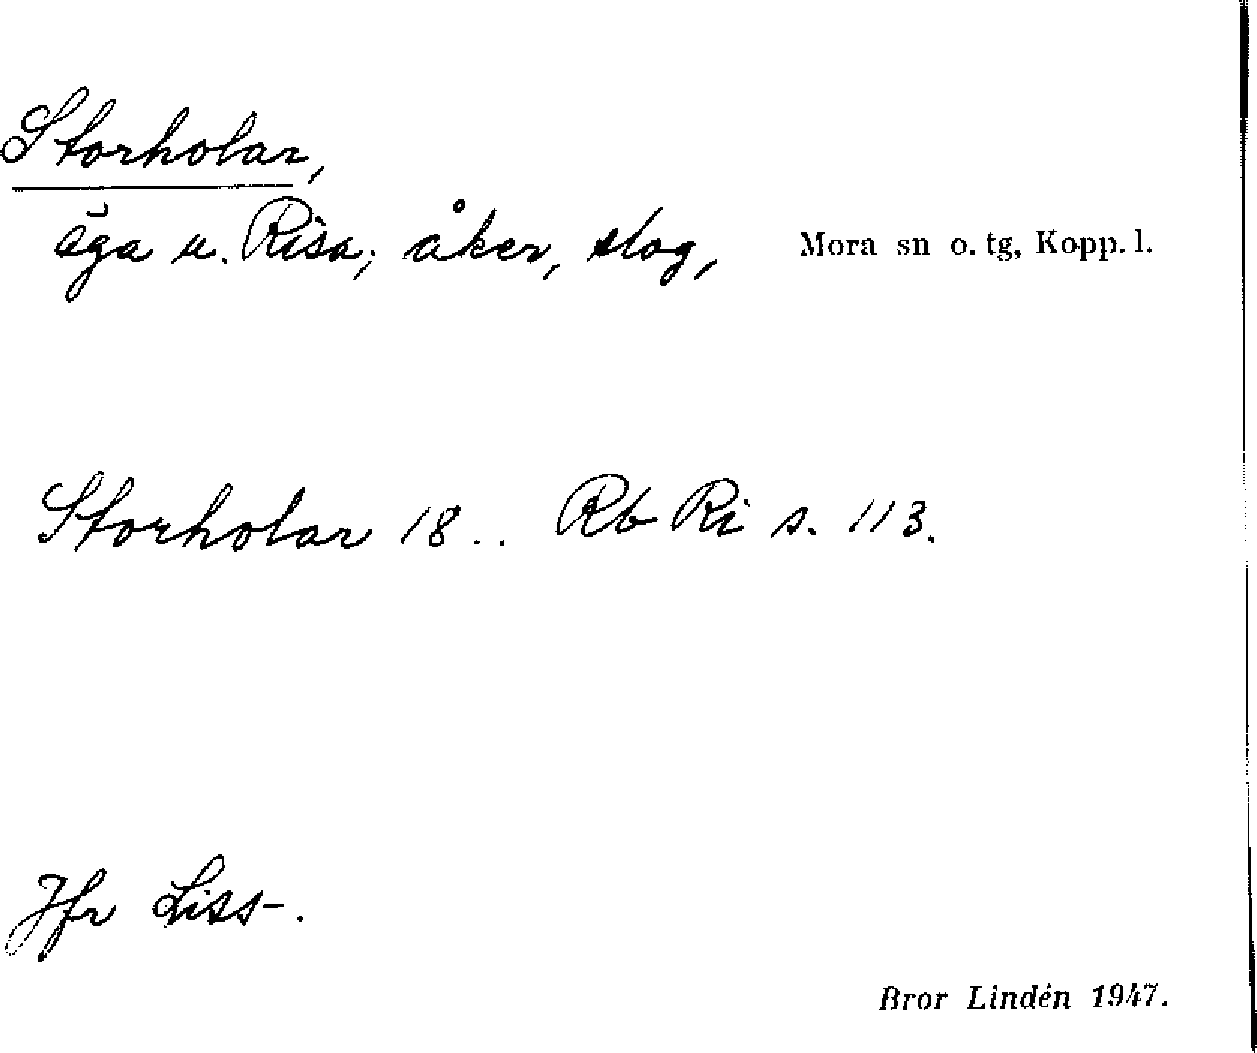 Storholar,
äga u. Risa; åker, slog, Mora sn o. tg, Kopp. l.
Storholar 18.. Rb Ri s. 113.
Jfr Liss-.
Bror Lindén 1947.